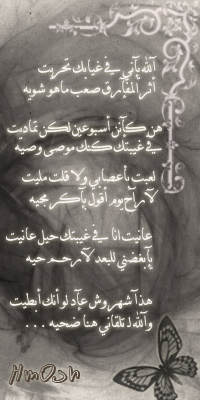 آلله يآني في غيابك تحريت
أثر المفآرق صعب ماهو شويه
هن كآنن أسبوعين لكن تماديت
في غيبتك كنك موصى وصيه
لعبت بأعصابي ولا قلت مليت
لآ رآح يوم أقول بآكر يجيه
عانيت انا في غيبتك حيل عانيت
يآبغضني للبعد لآ رحم حيه
هذآ شهر وش عآد لو انك أبطيت
وآلله لـ تلقاني هنا ضحيه . . .